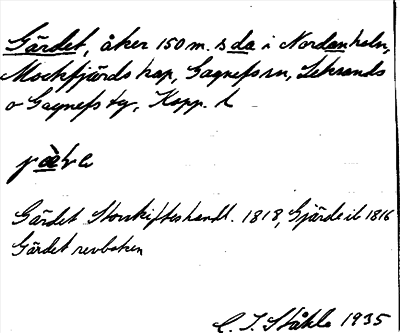 Gärdet, åker 150 m. s da i Nordanholn,
Mockfjärds kap, Gagnefs sn, Leksands
o Gagnefs tg, Kopp. l
Gärdet Storskifteshandl. 1818, Gjärde ib 1816
Gärdet revboken
C. I. Ståhle 1935